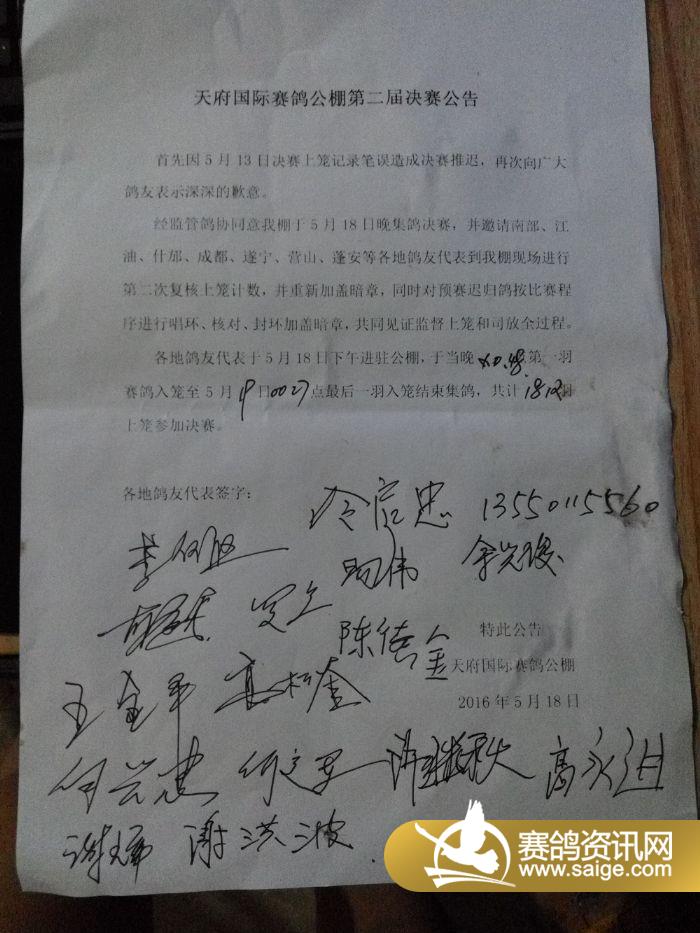 天府国际赛鸽公棚第二届决赛公告
首先因5月13日决赛上笼记录笔误造成决赛推迟，再次向广大
鸽友表示深深的歉意。
经监管鸽协同意我棚于5月18日晚集鸽决赛，并邀请南部、江
油、什邡、成都、遂宁、营山、蓬安等各地鸽友代表到我棚现场进行
第二次复核上笼计数，并重新加盖暗章，同时对预赛迟归鸽按比赛程
序进行唱环、核对、封环加盖暗章，共同见证监督上笼和司放全过程。
各地鸽友代表于5月18日下午进驻公棚，于当晚 第一羽
赛鸽入笼至5月19日0027点最后一羽入笼结束集鸽，共计 羽
上笼参加决赛。
各地鸽友代表签字：
冷启忠 13550115560
陈德金
特此公告
天府国际赛鸽公棚
2016年5月18日
王金平
何兴忠 高永进
谢洪波
赛鸽资讯网
www.saige.com